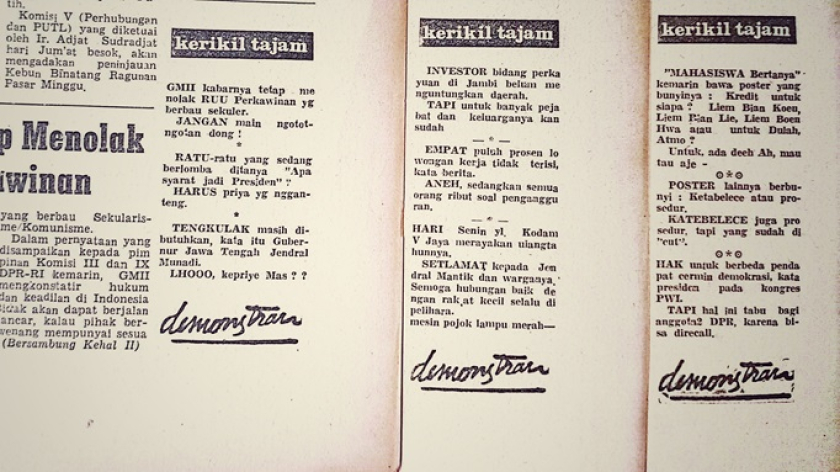 tih.
Komisi V (Perhubungan
dan PUTL) yang diketuai
oleh Ir. Adjat Sudradjat
hari Jum'at besok, akan
mengadakan peninjauan
Kebun Binatang Ragunan
Pasar Minggu.
p Menolak
awinan
yang berbau Sekularis-
me/Komunisme.
Dalam pernyataan yang
disampaikan kepada pim
pinan Komisi III dan IX
DPR-RI kemarin, GMII
mengkonstatir hukum
dan keadilan di Indonesia
tidak akan dapat berjalan
ancar, kalau pihak ber-
wenang mempunyai sesua
(Bersambung Kehal II)
kerikil tajam
GMII kabarnya tetap me
nolak RUU Perkawinan yg
berbau sekuler.
JANGAN main ngotot-
ngotan dong !
*
RATU-ratu yang sedang
berlomba ditanya "Apa
syarat jadi Presiden" ?
HARUS priya yg nggan-
teng.
*
TENGKULAK masih di-
butuhkan, kata itu Guber-
nur Jawa Tengah Jendral
Munadi.
LHOOO, kepriye Mas ? ?
demonstran
kerikil tajam
INVESTOR bidang perka
yuan di Jambi belum me
nguntungkan daerah.
TAPI untuk banyak peja
bat dan keluarganya kan
sudah
— * —
EMPAT puluh prosen lo
wongan kerja tidak terisi,
kata berita.
ANEH, sedangkan semua
orang ribut soal penganggu
ran.
— * —
HARI Senin yl. Kodam
V Jaya merayakan ulangta
hunnya.
SETLAMAT kepada Jen
dral Mantik dan warganya.
Semoga hubungan baik de
ngan rakjat kecil selalu di
pelihara.
mesin pojok lampu merah—
demonstran
kerikil tajam
"MAHASISWA Bertanya"
kemarin bawa poster yang
bunyinya : Kredit untuk
siapa ? Liem Bian Koen,
Liem Bian Lie, Liem Boen
Hwa atau untuk Dulah,
Atmo ?
Untuk, ada deeh Ah, mau
tau aje -
o*o
POSTER lainnya berbu-
nyi : Ketabelece atau pro-
sedur.
KATEBELECE juga pro
sedur, tapi yang sudah di
"cut".
o*o
HAK untuk berbeda penda
pat cermin demokrasi, kata
presiden pada kongres
PWI.
TAPI hal ini tabu bagi
anggota2 DPR, karena bi-
sa direcall.
demonstran